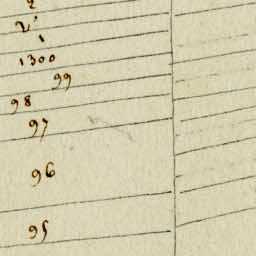 2
1
1300
99
98
97
96
95